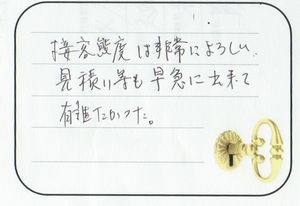 接客態度は非常によろしい。
見積り等も早急に出来て
有難たかった。